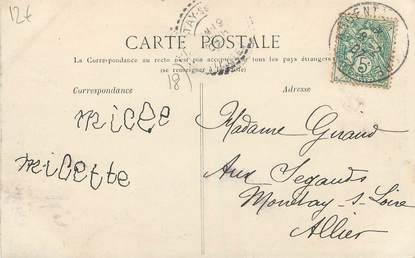 12€
CARTE POSTALE
La Correspondance au recto n'est pas acceptée par tous les pays étrangers
(se renseigner à la
Correspondance
Adresse
18
5c
micee
milette
Madame Giraud
Aux Segauds
Monétay-s-Loire
Allier